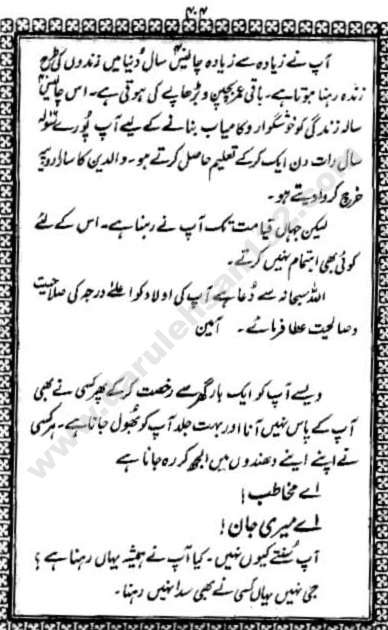 ۴۰۴
آپ نے زیادہ سے زیادہ چالیس سال دُنیا میں زندوں کی طرح
زندہ رہنا ہوتا ہے۔ باقی عمر بچپن و بڑھاپے کی ہوتی ہے۔ اس چالیس
سالہ زندگی کو خوشگوار و کامیاب بنانے کے لیے آپ پُورے سولہ
سال رات دن ایک کر کے تعلیم حاصل کرتے ہو۔ والدین کا سارا روپیہ
خرچ کروا دیتے ہو۔
لیکن جہاں قیامت تک آپ نے رہنا ہے۔ اس کے لئے
کوئی بھی اہتمام نہیں کرتے۔
اللہ سبحانہ سے دُعا ہے آپ کی اولاد کو اعلےٰ درجہ کی صلاحیت
و صالحیت عطا فرمائے۔ آمین
ویسے آپ کو ایک بار گھر سے رخصت کر کے پھر کسی نے بھی
آپ کے پاس نہیں آنا اور بہت جلد آپ کو بُھول جانا ہے۔ ہر کسی
نے اپنے اپنے دھندوں میں اُلجھ کر رہ جانا ہے
اے مخاطب!
اے میری جان!
آپ سُنتے کیوں نہیں۔ کیا آپ نے ہمیشہ یہاں رہنا ہے؟
جی نہیں یہاں کسی نے بھی سدا نہیں رہنا۔